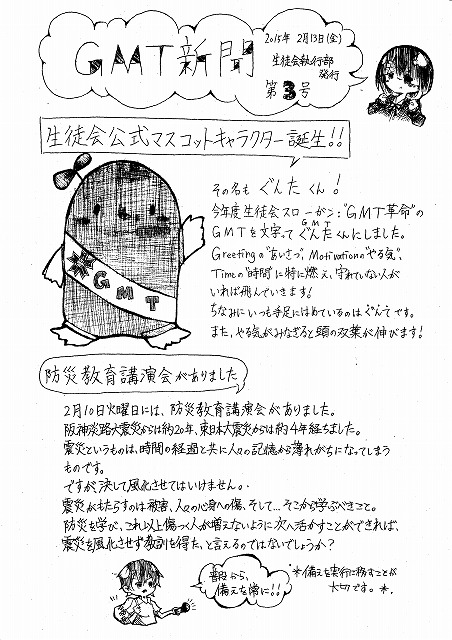 GMT新聞
2015年 2月13日(金)
生徒会執行部
発行
第3号
生徒会公式マスコットキャラクター誕生!!
その名も ぐんたくん!
今年度生徒会スローガン:"GMT革命"の
GMTを文字って ぐんたくんにしました。
GMT
Greetingの"あいさつ"、Motivationの"やる気"、
Timeの"時間"に特に燃え、守れていない人が
いれば飛んでいきます!
ちなみにいつも手足にはめているのはぐんてです。
また、やる気がみなぎると頭の双葉が伸びます!
GMT
防災教育講演会がありました
2月10日火曜日には、防災教育講演会がありました。
阪神淡路大震災からは約20年、東日本大震災からは約4年経ちました。
震災というものは、時間の経過と共に人々の記憶から薄れがちになってしまう
ものです。
ですが、決して風化させてはいけません。
震災がもたらすのは被害、人々の心身への傷、そして…そこから学ぶべきこと。
防災を学び、これ以上傷つく人が増えないように次へ活かすことができれば、
震災を風化させず教訓を得た、と言えるのではないでしょうか?
普段から、
備えを常に!!
*備えを実行に移すことが
大切です。*